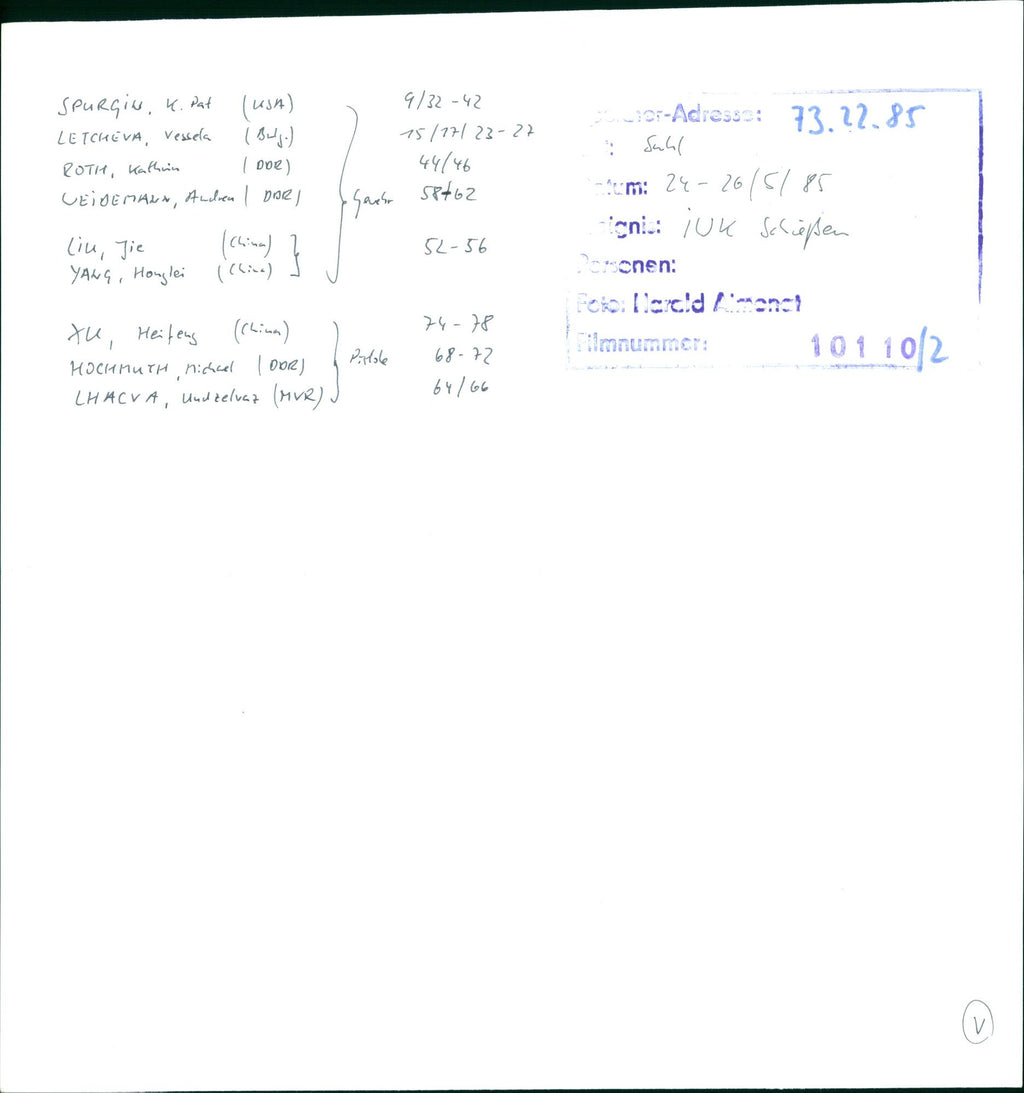 SPURGIN, K. Pat (USA) 9/32-42
LETCHEVA, Vessela (Bulg.) 15/17/23-27
ROTH, Kathrin (DDR) 44/46
WEIDEMANN, Andrea (DDR) Gewehr 58+62
LIU, Jie (China) 52-56
YANG, Honglei (China)
XU, Heifeng (China) 74-78
HOCHMUTH, Michael (DDR) Pistole 68-72
LHACVA, Undzelvaz (MVR) 64/66
-Adresse: 73.22.85
Suhl
Datum: 24-26/5/85
Ereignis: IWK Schießen
Personen:
Foto: Harald Almonat
Filmnummer: 101 10/2
V